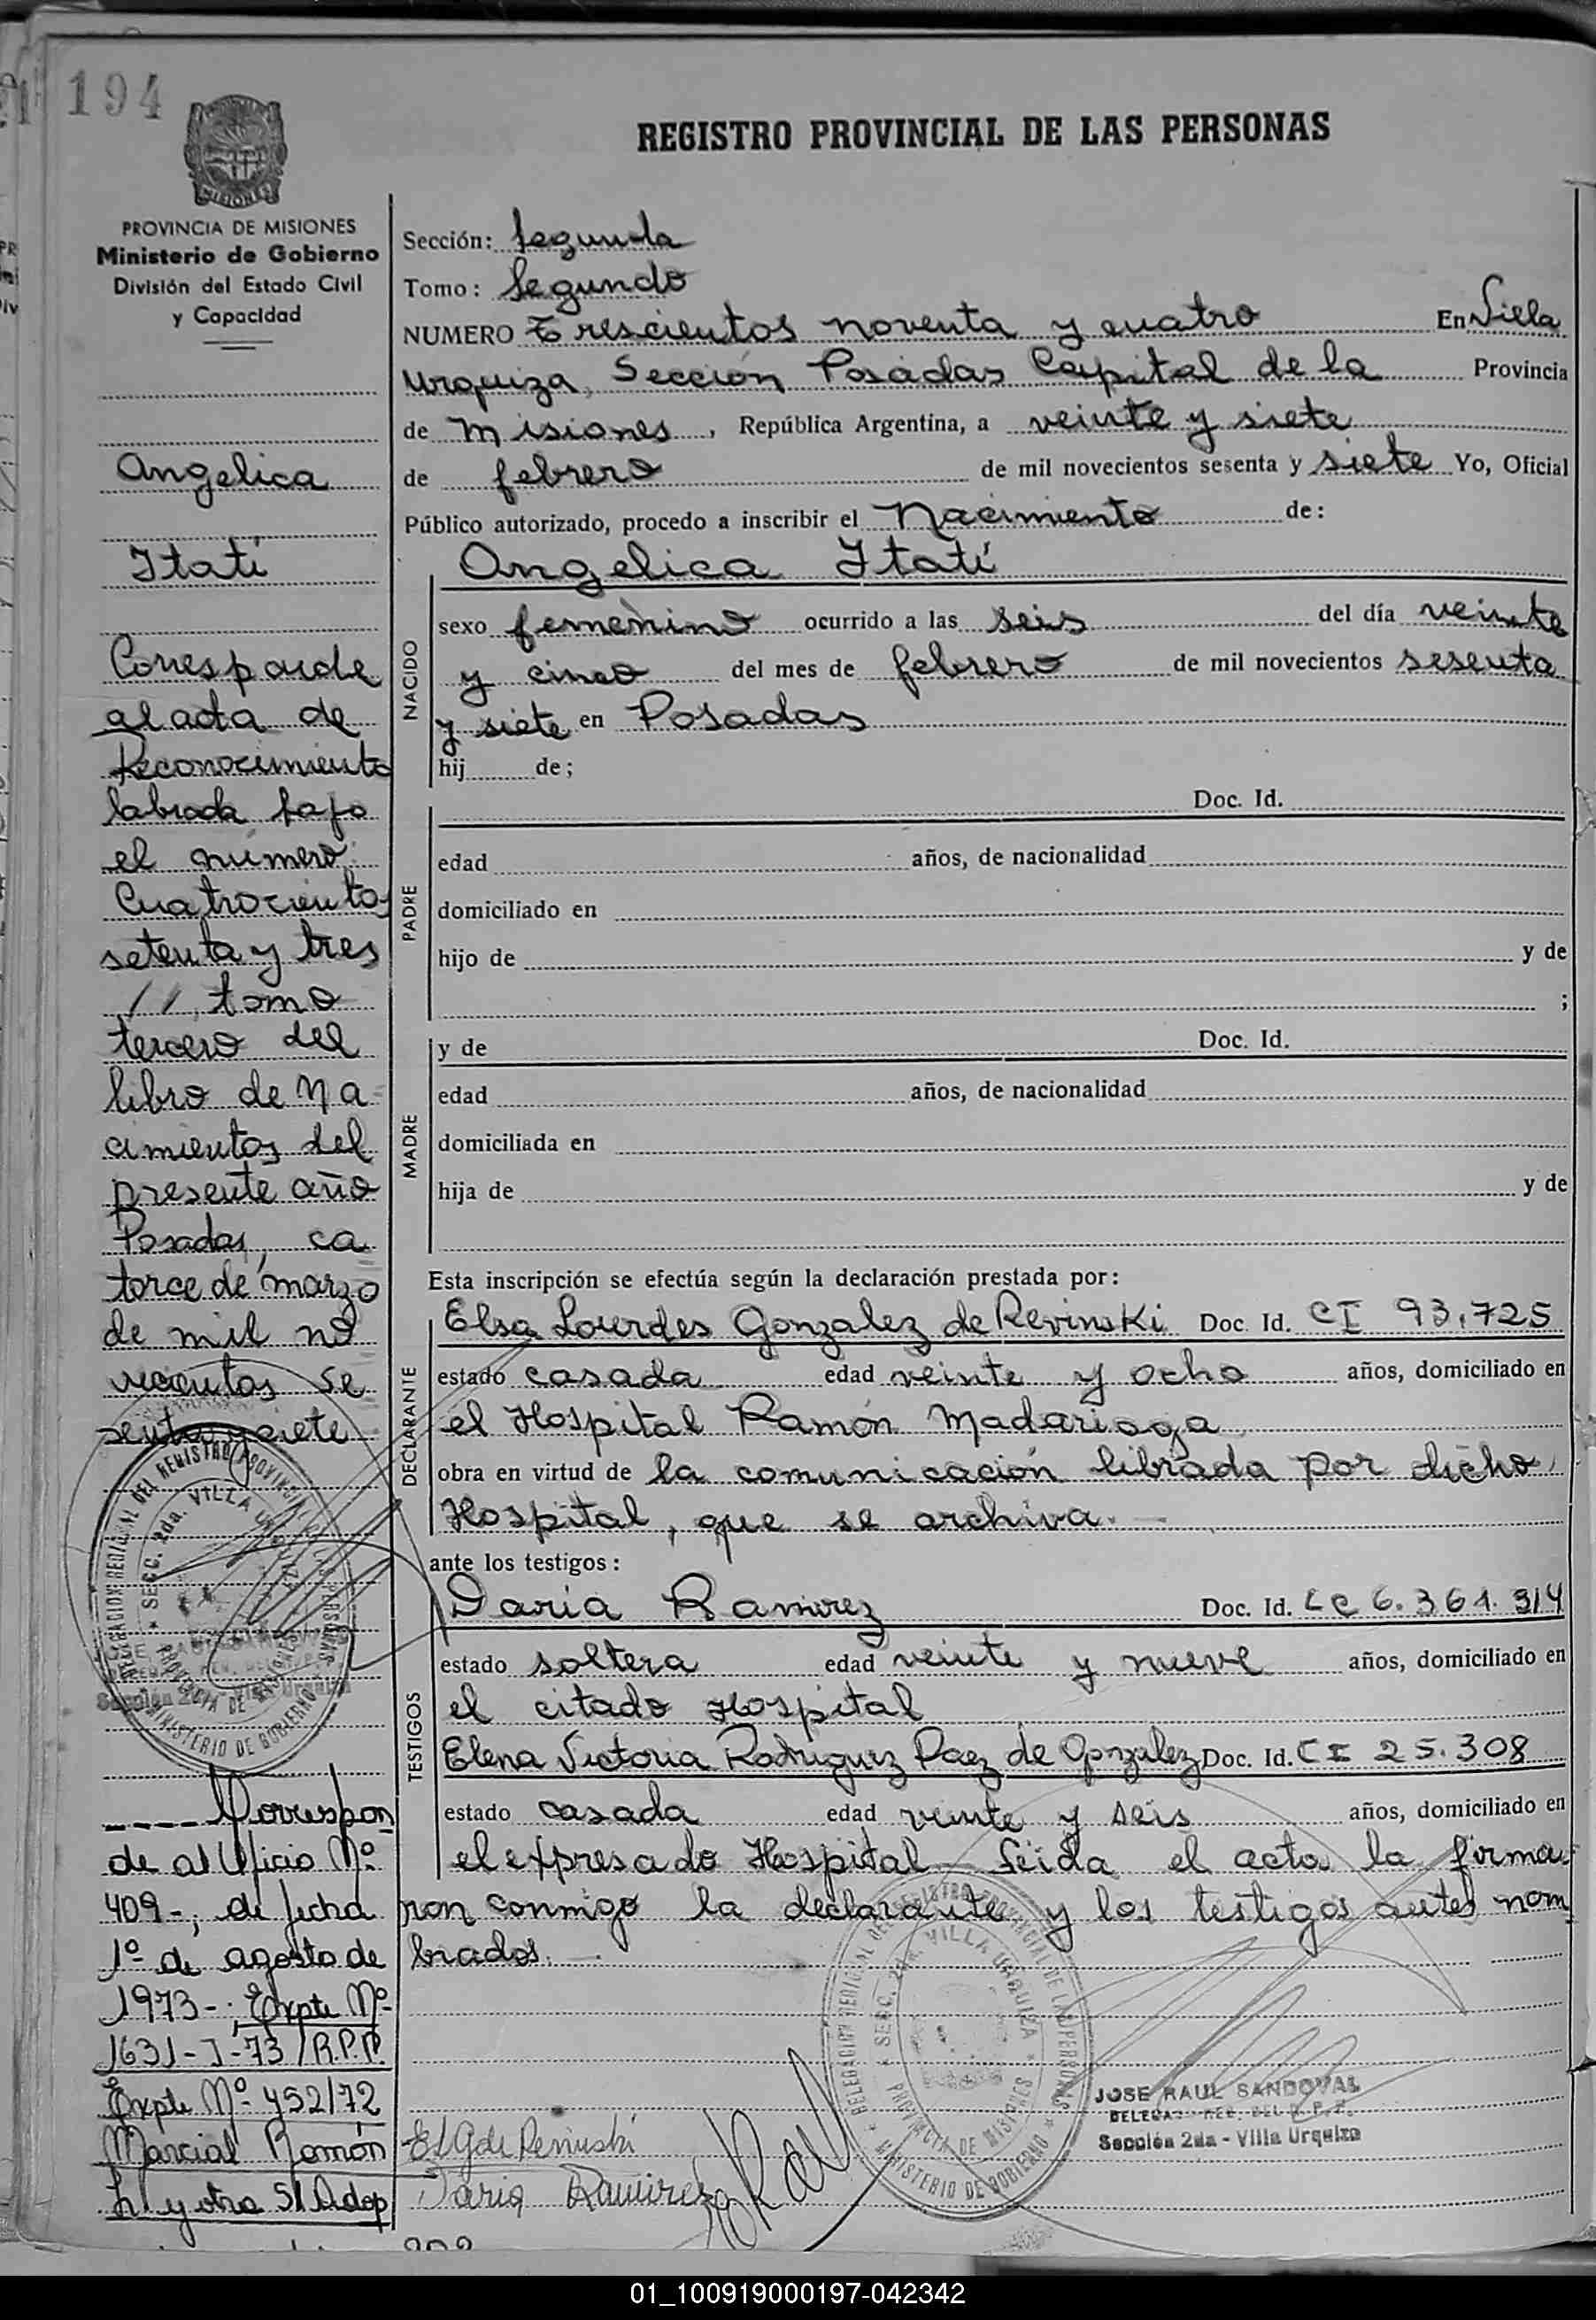 194
REGISTRO PROVINCIAL DE LAS PERSONAS
MISIONES
PROVINCIA DE MISIONES
Ministerio de Gobierno
División del Estado Civil
y Capacidad
Angelica
Itatí
Corresponde
al acta de
Reconocimiento
labrada bajo
el número
Cuatrocientos
setenta y tres
//, tomo
tercero del
libro de Na=
cimientos del
presente año
Posadas, ca
torce de marzo
de mil no
vecientos se
senta y siete
Sección: Segunda
Tomo: Segundo
NUMERO Trescientos noventa y cuatro En Villa
Urquiza, Sección Posadas Capital de la Provincia
de Misiones, República Argentina, a veinte y siete
de febrero de mil novecientos sesenta y siete Yo, Oficial
Público autorizado, procedo a inscribir el Nacimiento de:
Angelica Itatí
NACIDO
sexo femenino ocurrido a las seis del día veinte
y cinco del mes de febrero de mil novecientos sesenta
y siete en Posadas
hij de;
PADRE
Doc. Id.
edad años, de nacionalidad
domiciliado en
hijo de y de
;
MADRE
y de Doc. Id.
edad años, de nacionalidad
domiciliada en
hija de y de
Esta inscripción se efectúa según la declaración prestada por:
DECLARANTE
Elsa Lourdes Gonzalez de Revinski Doc. Id. CI 93.725
estado casada edad veinte y ocho años, domiciliado en
el Hospital Ramón Madariaga
obra en virtud de la comunicación librada por dicho
Hospital, que se archiva.
ante los testigos:
TESTIGOS
Daria Ramirez Doc. Id. LC 6.361.314
estado soltera edad veinte y nueve años, domiciliado en
el citado Hospital
Elena Victoria Rodriguez Paez de Gonzalez Doc. Id. CI 25.308
estado casada edad veinte y seis años, domiciliado en
el expresado Hospital Leida el acta la firma
ron conmigo la declarante y los testigos antes nom
brados.
---- Correspon
de al Oficio Nº
409-, de fecha
1º de agosto de
1973-; Expte Nº
1631-I-73/R.P.P.
Expte Nº 452/72
Marcial Ramón
L. y otra S/ Adop
DELEGACION REGIONAL DEL REGISTRO PROVINCIAL DE LAS PERSONAS
SECC. 2da. VILLA URQUIZA
PROVINCIA DE MISIONES
MINISTERIO DE GOBIERNO
Sección 2da - Villa Urquiza
DELEGACION REGIONAL DEL REGISTRO PROVINCIAL DE LAS PERSONAS
SECC. 2da. VILLA URQUIZA
PROVINCIA DE MISIONES
MINISTERIO DE GOBIERNO
JOSE RAUL SANDOVAL
DELEGADO REG. DEL R. P. P.
Sección 2da - Villa Urquiza
E L G de Revinski
Daria Ramirez
01_100919000197-042342